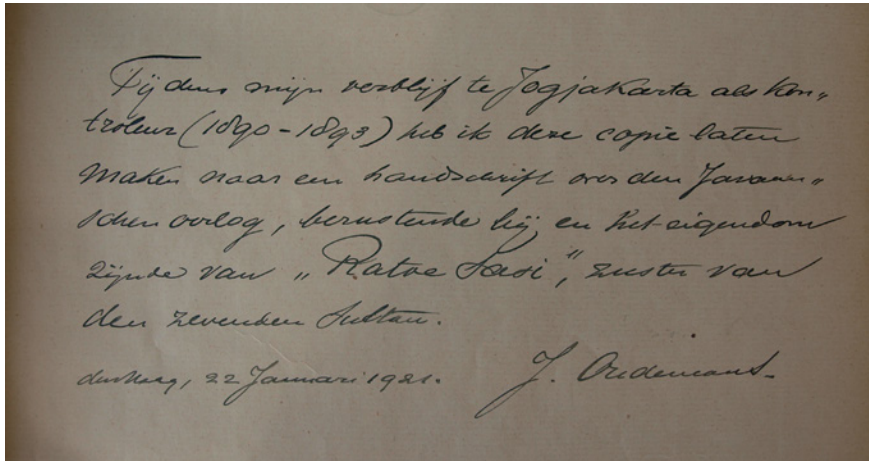 Tijdens mijn verblijf te Jogjakarta als Kon„
troleur (1890-1893) heb ik deze copie laten
maken naar een handschrift over den Javaan„
schen oorlog, berustende bij en het eigendom
zijnde van „Ratoe Sasi", zuster van
den zevenden Sultan.
den Haag, 22 Januari 1921. J. Oudemans.